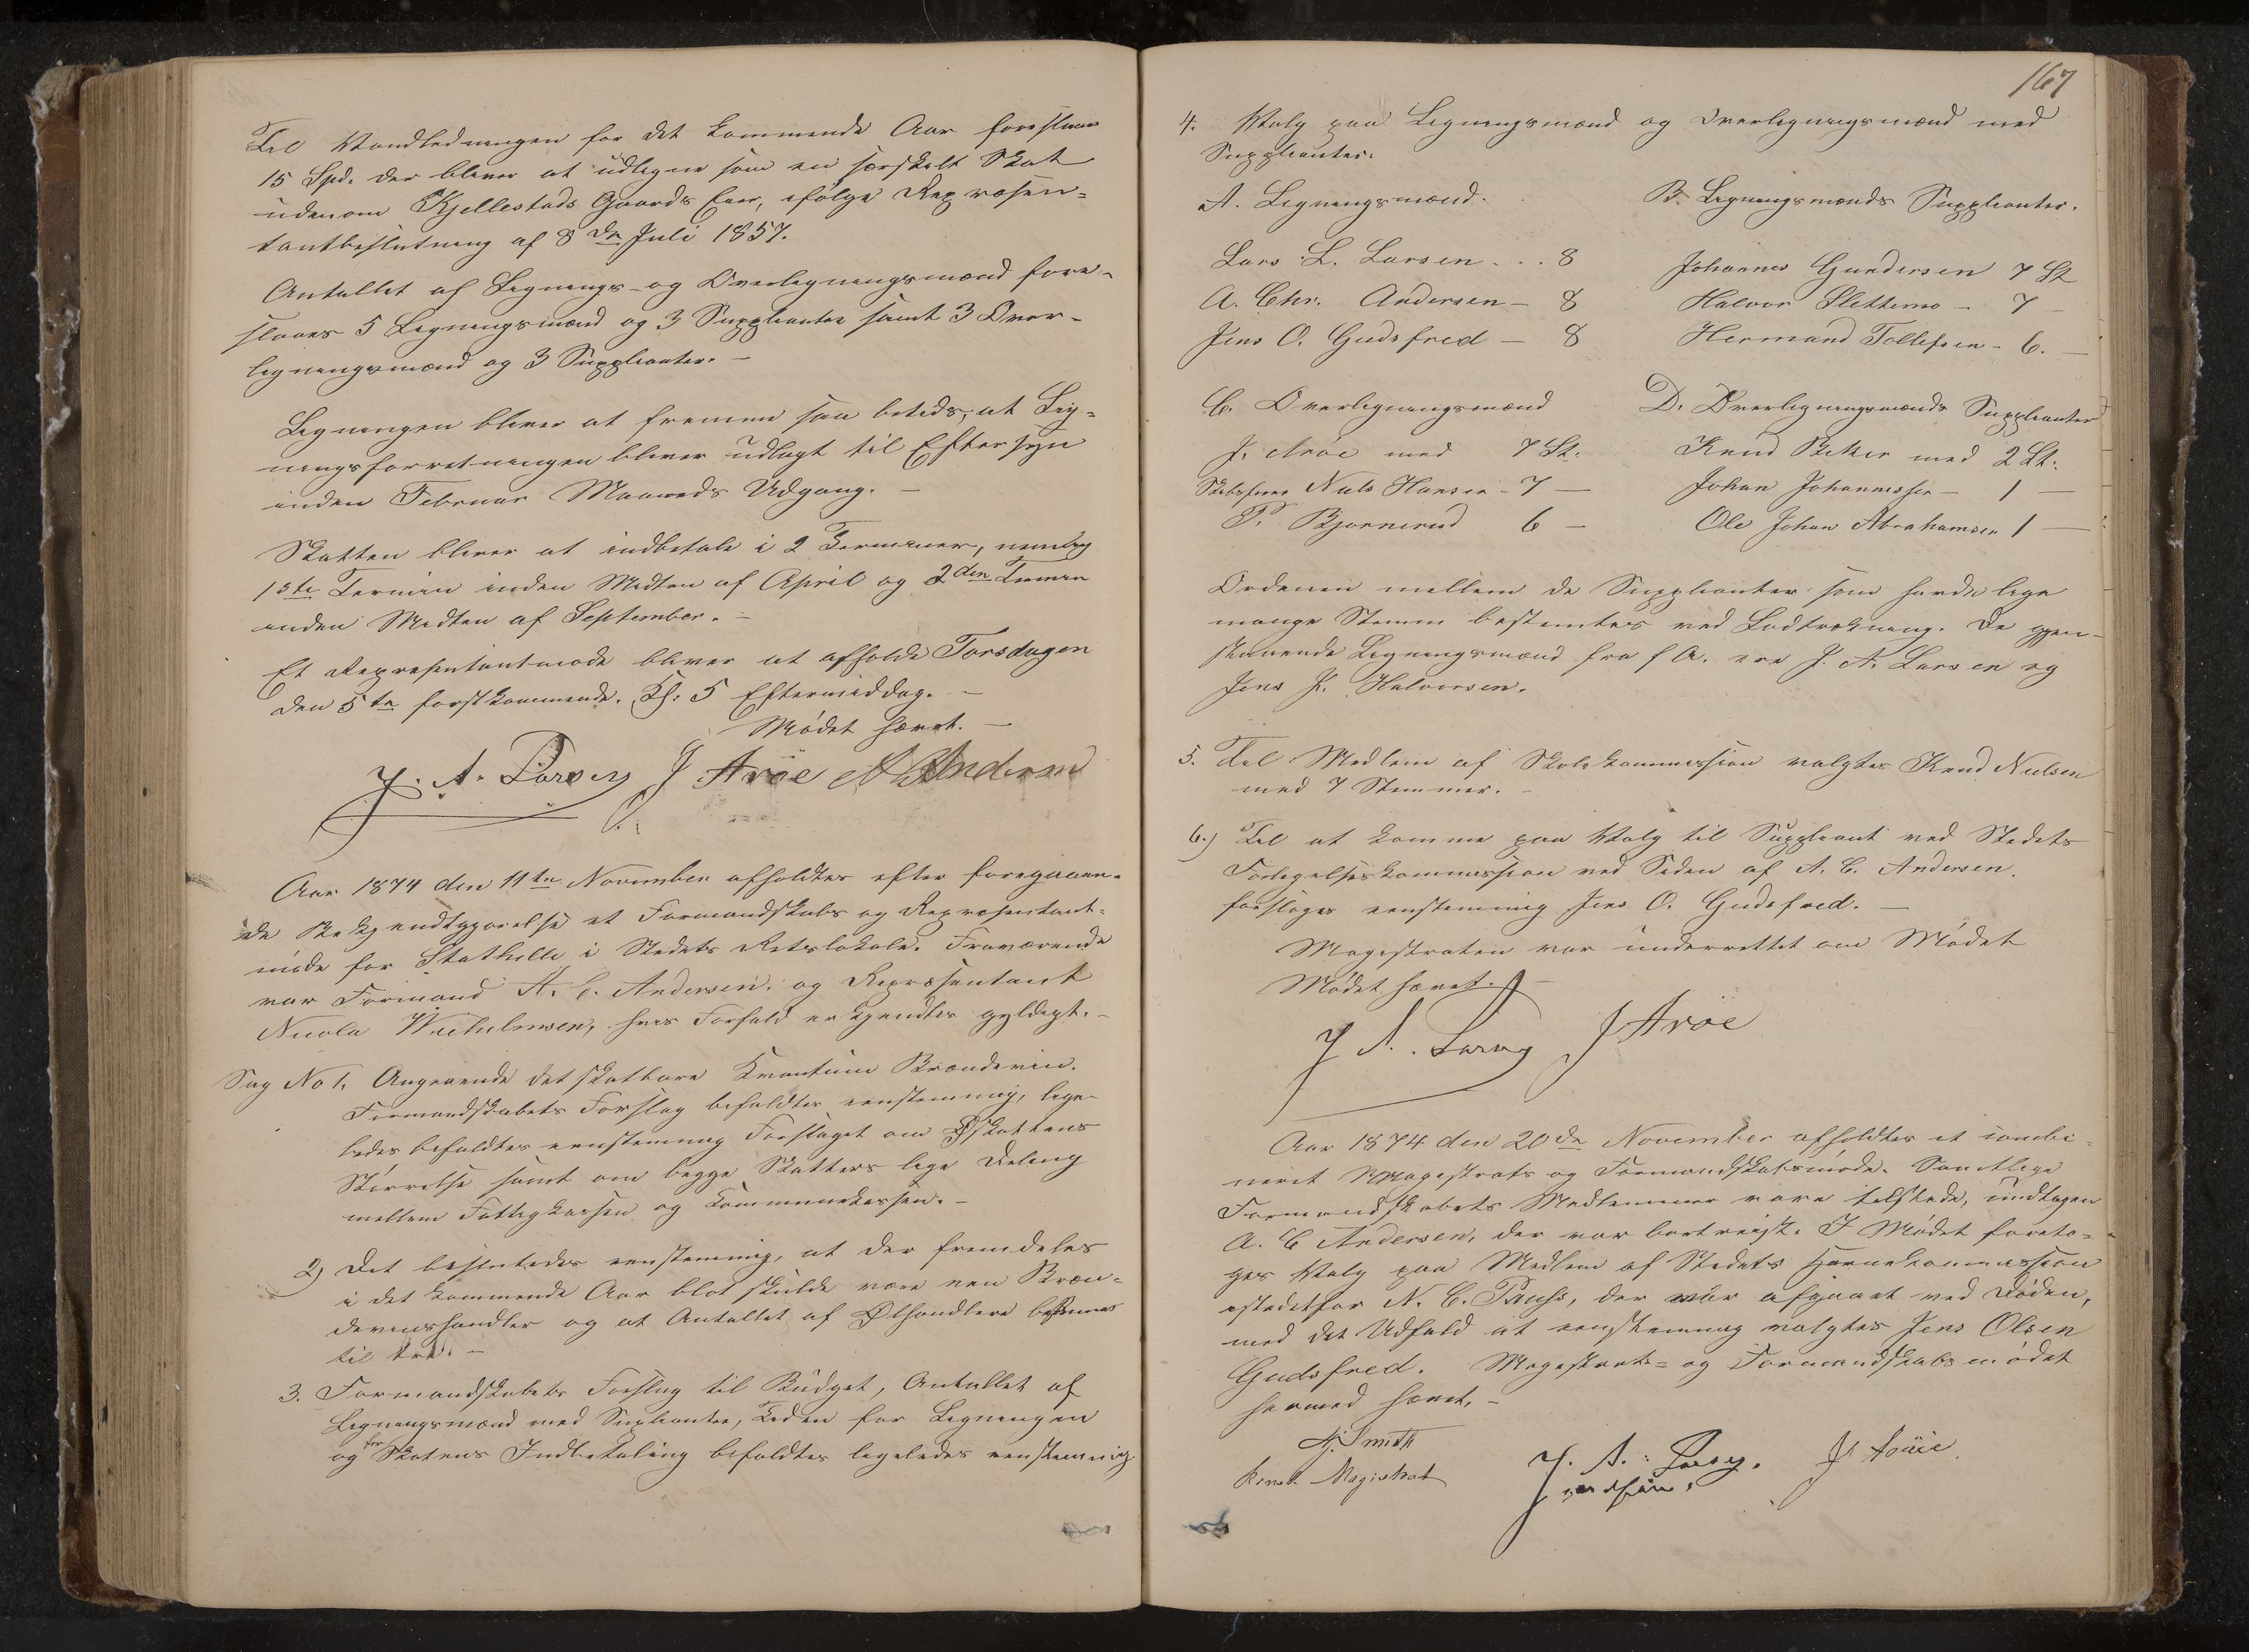 Til Vandledningen for det kommende Aar foreslaaes
15 Spd. der bliver at udligne som en særskilt Skat
udenom Kjellestads Gaards Eier, ifølge Repræsen=
tantbeslutning af 8de Juli 1857.
Antallet af Lignings- og Overligningsmænd fore-
slaaes 5 Ligningsmænd og 3 Suppleanter samt 3 Over-
ligningsmænd og 3 Suppleanter. -
Ligningen bliver at fremme saa betids, at Lig=
ningsforretningen bliver udlagt til Eftersyn
inden Februar Maaneds Udgang. -
Skatten bliver at indbetale i 2 Terminer, nemlig
1ste Termin inden Midten af April og 2den Termin
inden Midten af September. -
Et Repræsentantmøde bliver at afholde Torsdagen
den 5te førstkommende. Kl: 5 Eftermiddag. -
Mødet hævet. -
J. A. Larsen J Arøe A C Andersen
Aar 1874 den 11te November afholdtes efter foregaaen-
de Bekjendtgjørelse et Formandskabs og Repræsentant-
møde for Stathelle i Stedets Retslokale. Fraværende
var Formand A. C. Andersen og Repræsentant
Nicola Wilhelmsen, hvis Forfald erkjendtes gyldigt. -
Sag No 1. Angaaende det skatbare Kvantum Brændeviin.
Formandskabets Forslag bifaldtes eenstemmig, lige-
ledes bifaldtes eenstemmig Forslaget om Ølskattens
Størrelse samt om begge Skatters lige Deling
mellem Fattigkassen og Kommunekassen. -
2) Det besluttedes eenstemmig, at der fremdeles
i det kommende Aar blot skulde være een Bræn=
deviinshandler og at Antallet af Ølhandlere bestemmes
til tre. -
3. Formandskabets Forslag til Budget, Antallet af
Ligningsmænd med Supleanter, Tiden for Ligningen
og for Skatens Indbetaling bifaldtes ligeledes eenstemmig
167
4. Valg paa Ligningsmænd og Overligningsmænd med
Suppleanter.
A. Ligningsmænd.
Lars L. Larsen . . . 8
A. Chr. Andersen - 8
Jens O. Gudsfred - 8
B. Ligningsmænds Suppleanter.
Johannes Gundersen 7 St
Halvor Slettemo - 7 -
Hermand Tollefsen - 6. -
C. Overligningsmænd
J. Arøe med 7 St.
Skibsfører Niels Hansen - 7 -
P. Bjørnerud 6 -
D. Overligningsmænds Suppleanter
Knud Betker med 2 St.
Johan Johannessen - 1 -
Ole Johan Abrahamsen 1 -
Ordenen mellem de Suppleanter som havde lige
mange Stemmer bestemtes ved Lodtrækning. De gjen-
staaende Ligningsmænd fra f A. ere J. A. Larsen og
Jens J. Halvorsen.
5. Til Medlem af Skolekommission valgtes Knud Nielsen
med 7 Stemmer. -
6.) Til at komme paa Valg til Suppleant ved Stedets
Forligelseskommission ved Siden af A. C. Andersen.
forsloges eenstemmig Jens O. Gudsfred. -
Magistraten var underrettet om Mødet
Mødet hævet. -
J A. Larsen J Arøe
Aar 1874 den 20de November afholdtes et combi=
neret Magistrats og Formandskabsmøde. Samtlige
Formandskabets Medlemmer vare tilstede, undtagen
A. C Andersen, der var bortreist. I Mødet foreto=
ges Valg paa Medlem af Stedets Havnekommission
istedetfor N. C. Pauss, der var afgaaet ved Døden,
med det Udfald at eenstemmig valgtes Jens Olsen
Gudsfred. Magistrats= og Formandskabsmødet
hermed hævet. -
Smith
Const. Magistrat
J. A. Larsen. J Arøe